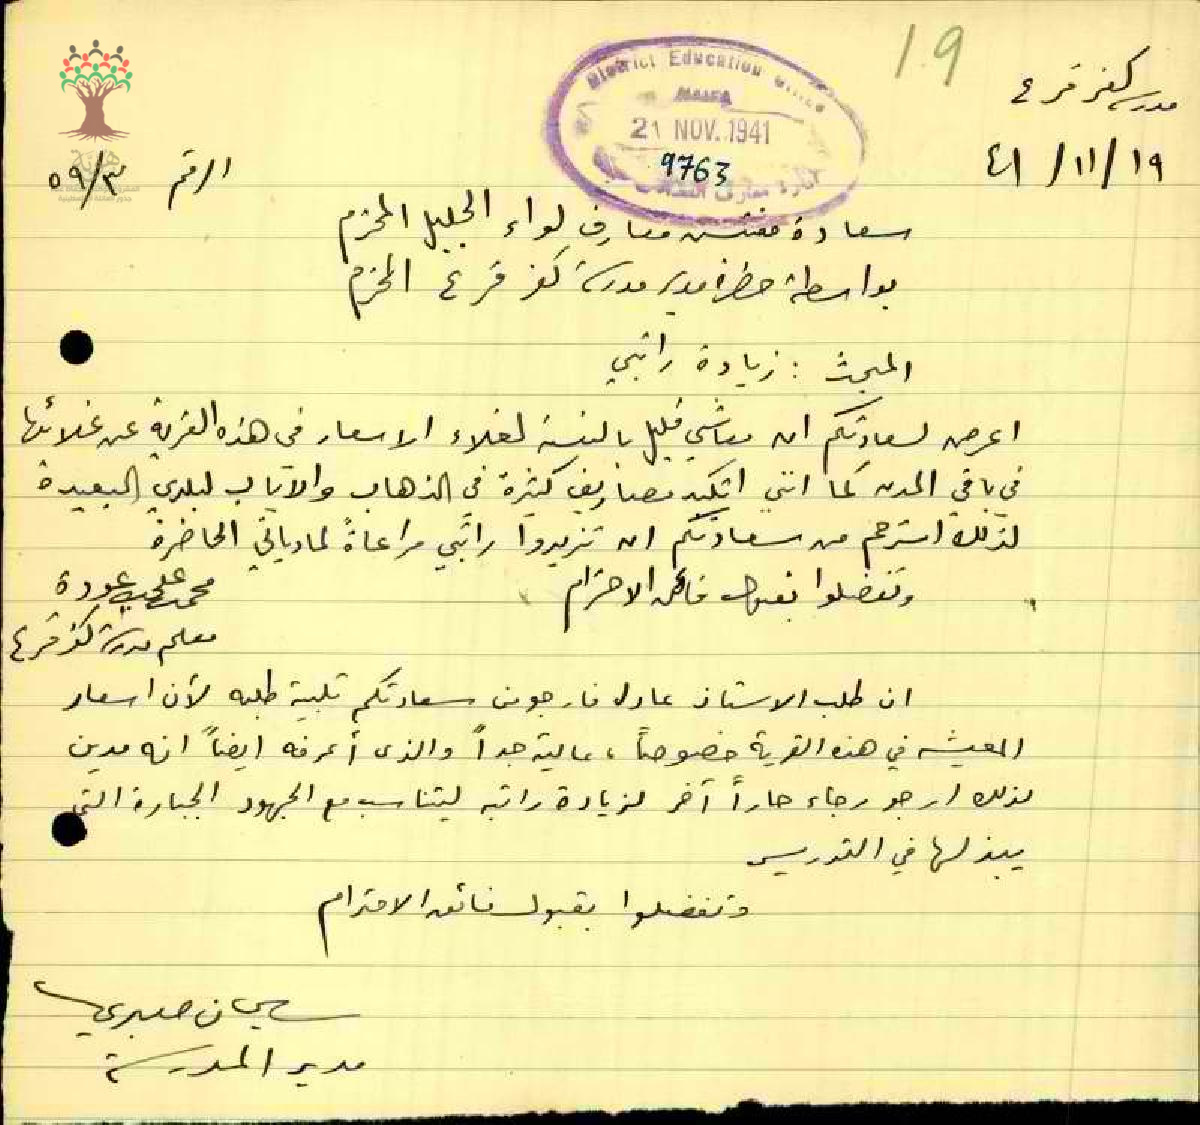 19
مدرسة كفر قرع
District Education Office
HAIFA
21 NOV. 1941
9763
١٩/١١/٤١
الرقم ٥٩/٣
سعادة مفتش معارف لواء الجليل المحترم
بواسطة حضرة مدير مدرسة كفر قرع المحترم
المبحث : زيادة راتبي
اعرض لسعادتكم ان معاشي قليل بالنسبة لغلاء الاسعار في هذه القرية عن غلائها
في باقي المدن كما انني اتكبد مصاريف كثيرة في الذهاب والاياب لبلدي البعيدة
لذلك استرحم من سعادتكم ان تزيدوا راتبي مراعاةً لمادياتي الحاضرة
وتفضلوا بقبول فائق الاحترام
محمد عودة
معلم مدرسة كفر قرع
ان طلب الاستاذ عادل فارجو من سعادتكم تلبية طلبه لأن اسعار
المعيشه في هذه القرية خصوصاً، عالية جداً والذى أعرفه ايضاً انه مدين
لذلك ارجو رجاء حاراً آخر لزيادة راتبه ليتناسب مع الجهود الجبارة التى
يبذلها في التدريس
وتفضلوا بقبول فائق الاحترام
صبري
مدير المدرسة